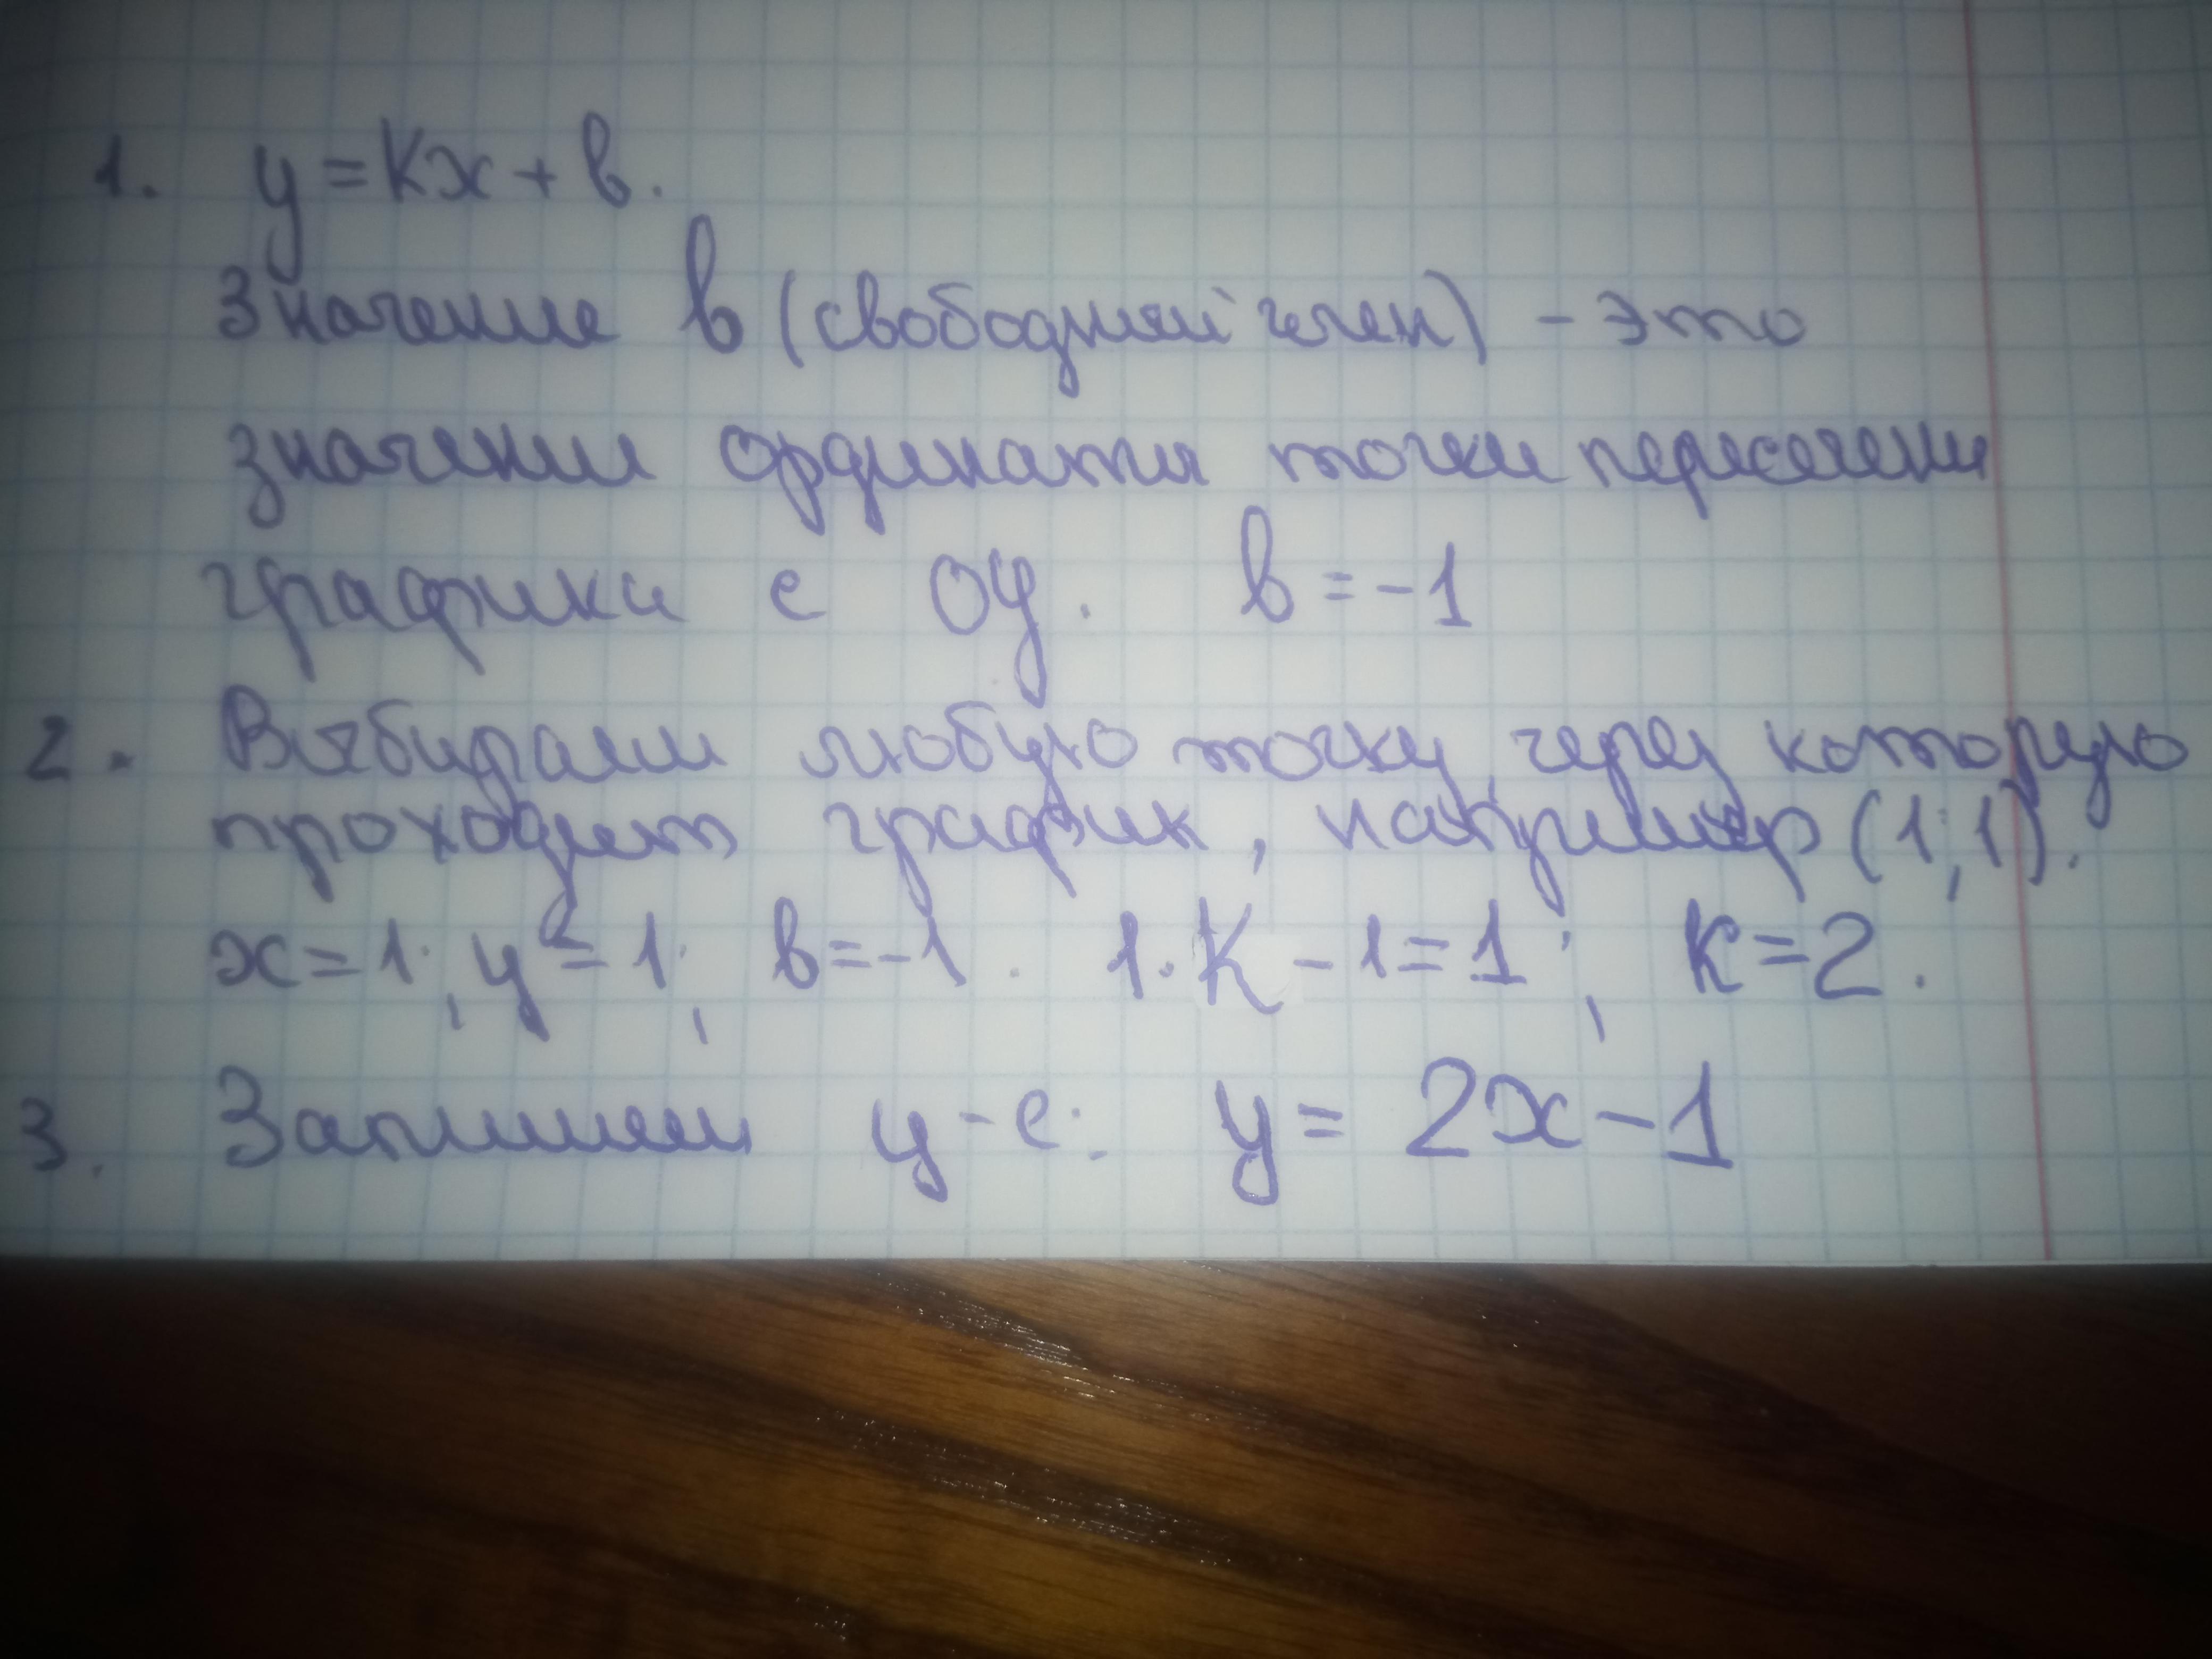 1. y = kx + b.
Значение b (свободный член) - это
значение ординаты точки пересечени
графика с Oy. b = -1
2. Выбираем любую точку, через которую
проходит график, например (1;1).
x = 1; y = 1; b = -1. 1·K - 1 = 1; K = 2.
3. Запишем у-е: y = 2x - 1